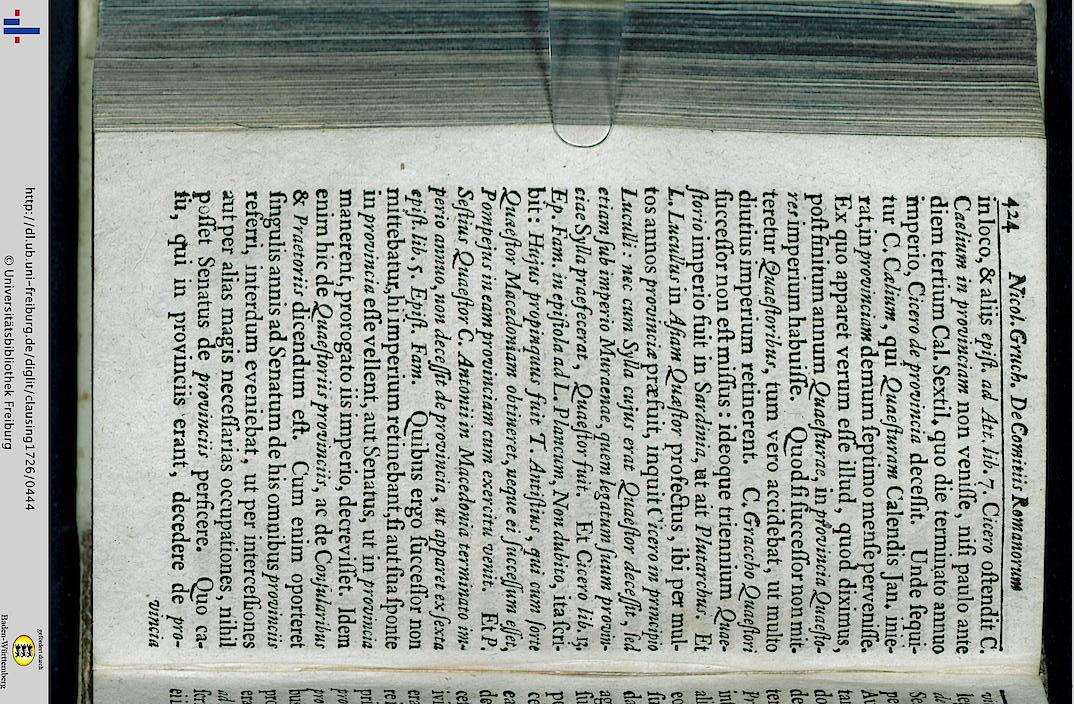 424 Nicol. Gruch. De Comitiis Romanorum
in loco, & aliis epist. ad Att. lib. 7. Cicero ostendit C.
Caelium in provinciam non venisse, nisi paulo ante
diem tertium Cal. Sextil. quo die terminato annuo
imperio, Cicero de provincia decessit. Unde sequi-
tur C. Caelium, qui Quaesturam Calendis Jan. inie-
rat, in provinciam demum septimo mense pervenisse.
Ex quo apparet verum esse illud, quod diximus,
post finitum annum Quaesturae, in provincia Quaesto-
res imperium habuisse. Quod si successor non mit-
teretur Quaestoribus, tum vero accidebat, ut multo
diutius imperium retinerent. C. Graccho Quaestori
successor non est missus: ideoque triennium Quae-
storio imperio fuit in Sardinia, ut ait Plutarchus. Et
L. Lucullus in Asiam Quaestor profectus, ibi per mul-
tos annos provinciae praefuit, inquit Cicero in principio
Luculli: nec cum Sylla cujus erat Quaestor decessit, sed
etiam sub imperio Muraenae, quem legatum suum provin-
ciae Sylla praefecerat, Quaestor fuit. Et Cicero lib. 13.
Ep. Fam. in epistola ad L. Plancum, Non dubito, ita scri-
bit: Hujus propinquus fuit T. Antistius, qui cum sorte
Quaestor Macedoniam obtineret, neque ei successum esset,
Pompejus in eam provinciam cum exercitu venit. Et P.
Sestius Quaestor C. Antonii in Macedonia terminato im-
perio annuo, non decessit de provincia, ut apparet ex sexta
epist. lib. 5. Epist. Fam. Quibus ergo successor non
mittebatur, hi imperium retinebant, si aut sua sponte
in provincia esse vellent, aut Senatus, ut in provincia
manerent, prorogato iis imperio, decrevisset. Idem
enim hic de Quaestoriis provinciis, ac de Consularibus
& Praetoriis dicendum est. Cum enim oporteret
singulis annis ad Senatum de his omnibus provinciis
referri, interdum eveniebat, ut per intercessiones
aut per alias magis necessarias occupationes, nihil
posset Senatus de provinciis perficere. Quo ca-
su, qui in provinciis erant, decedere de pro-
vincia
http://dl.ub.uni-freiburg.de/diglit/clausing1726/0444
© Universitätsbibliothek Freiburg
gefördert durch
Baden-Württemberg